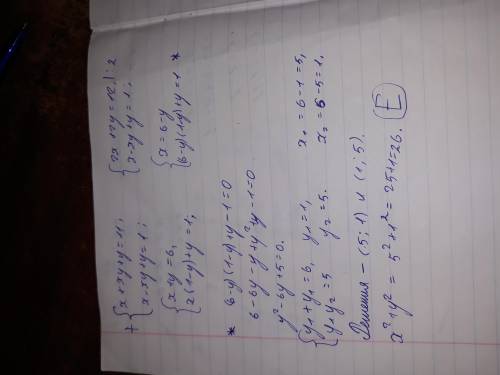 + { x+xy+y=11; { 2x+2y=12 |:2
x-xy+y=1; x-xy+y=1;
{ x+y=6, { x=6-y
x(1-y)+y=1, (6-y)(1-y)+y=1 *
* (6-y)(1-y)+y-1=0
6-6y-y+y²+y-1=0
y²-6y+5=0.
{ y₁+y₂=6, y₁=1, x₁=6-1=5,
y₁y₂=5 y₂=5. x₂=6-5=1.
Решения - (5; 1) и (1; 5).
x²+y²=5²+1²=25+1=26. E